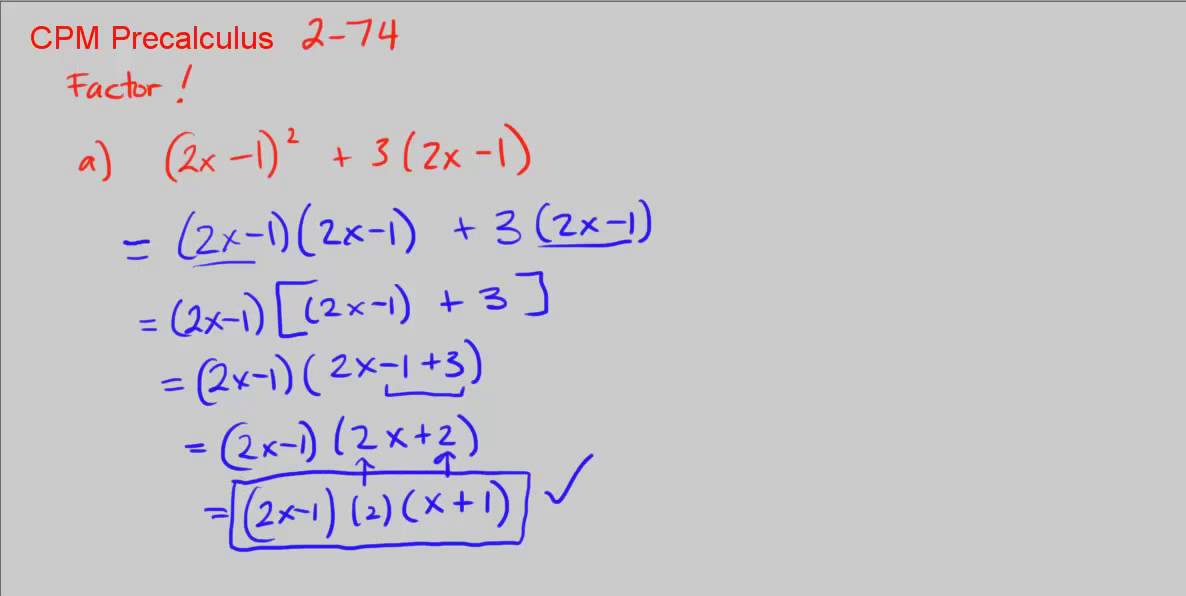 CPM Precalculus 2-74
Factor!
a) (2x-1)² + 3(2x-1)
= (2x-1)(2x-1) + 3(2x-1)
= (2x-1)[(2x-1) + 3]
= (2x-1)(2x-1+3)
= (2x-1)(2x+2)
= (2x-1)(2)(x+1) ✓